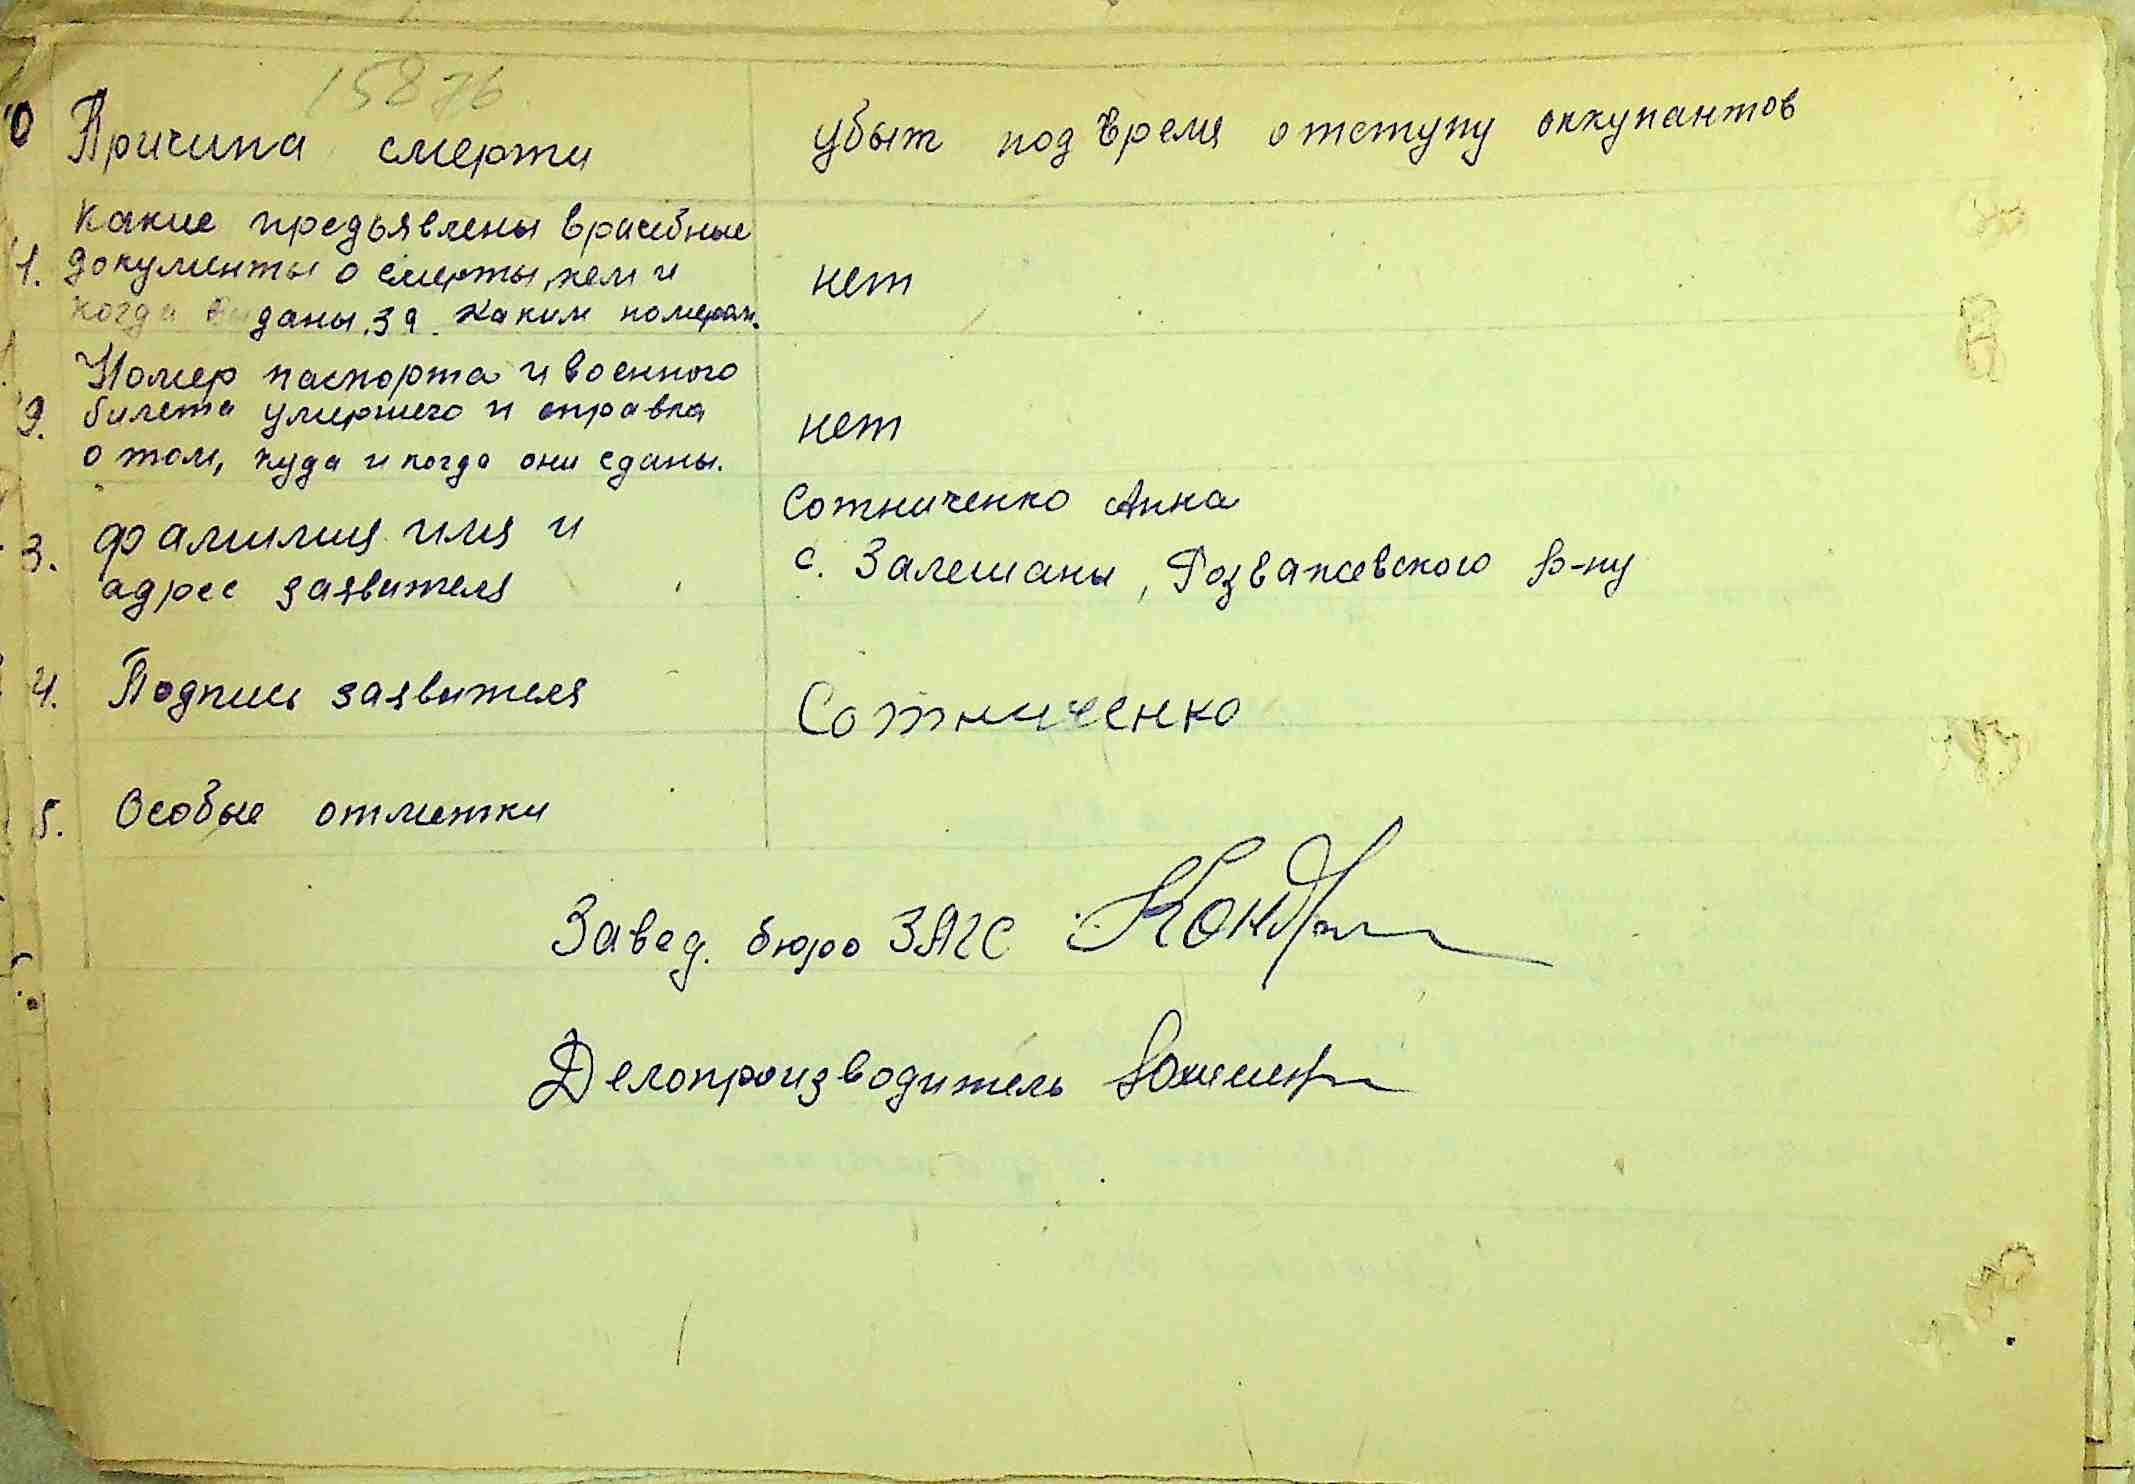 15876
10 Причина смерти убыт под время отступу оккупантов
Какие предъявлены врачебные
1. документы о смерты, кем и нет
когда выданы. За каким номером.
Номер паспорта и военного
2. билета умершего и справка нет
о том, куда и когда они сданы.
Сотниченко Анна
3. Фамилия имя и с. Залешаны, Розважевского р-ну
адрес заявителя
4. Подпись заявителя Сотниченко
5. Особые отметки
Завед. бюро ЗАГС
Делопроизводитель